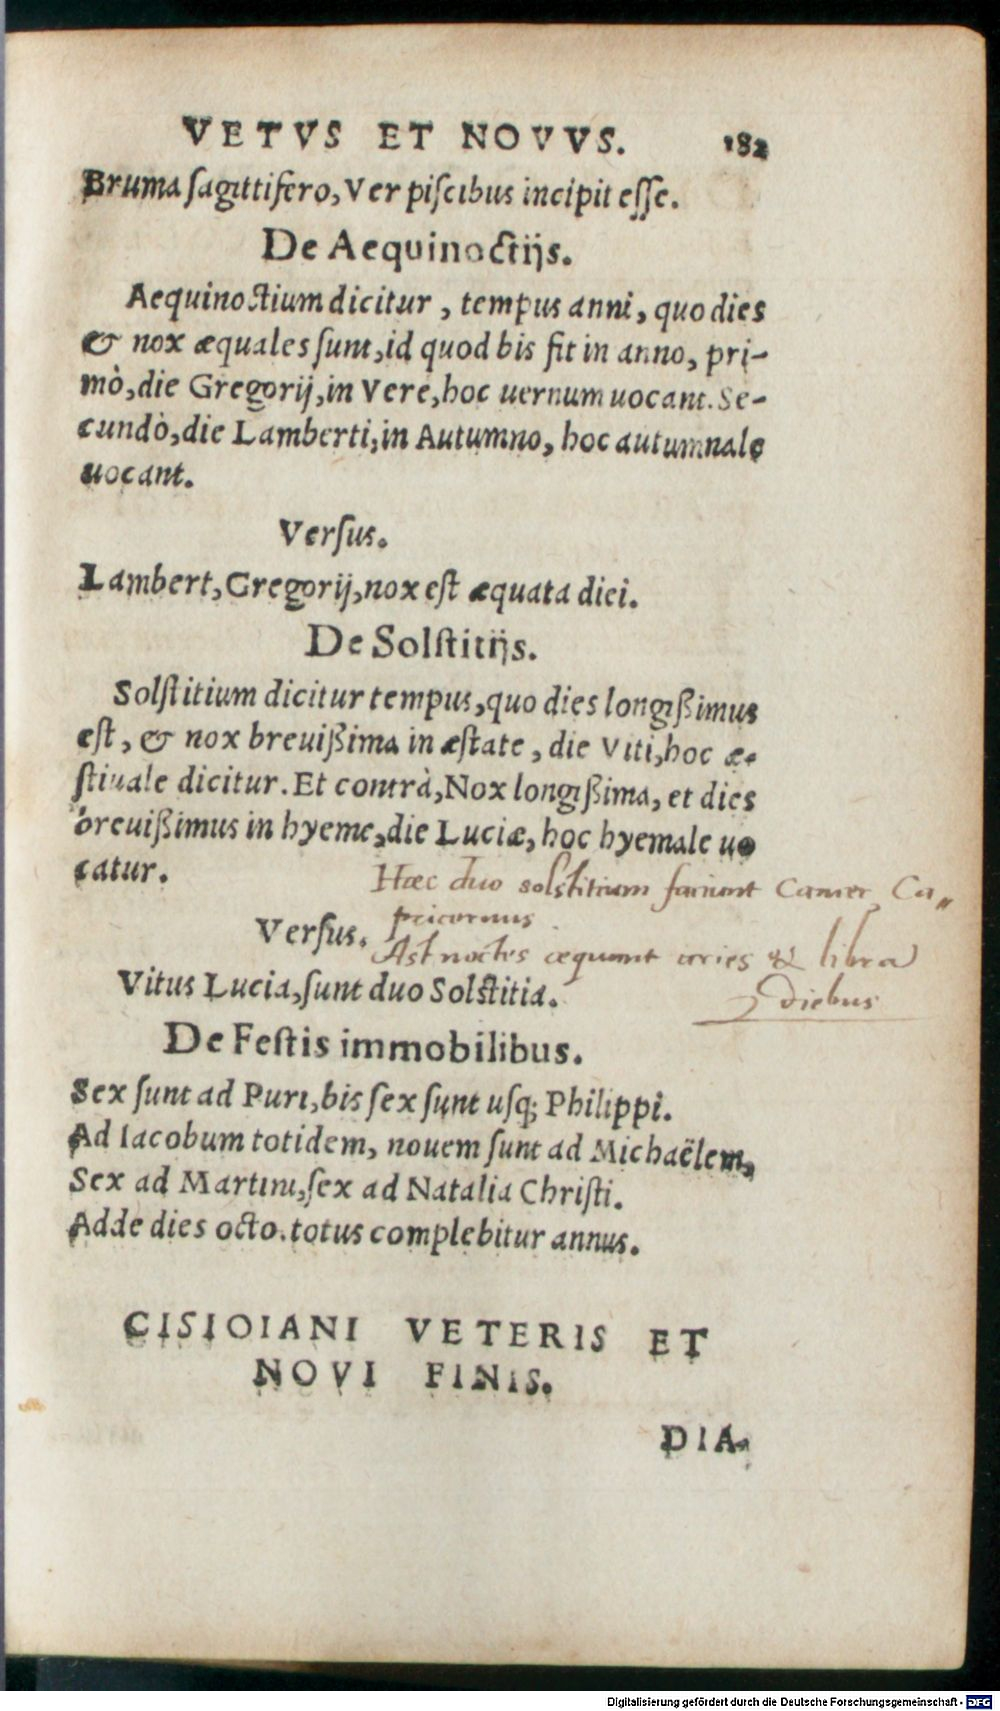 VETVS ET NOVVS. 182
Bruma ſagittifero, Ver piſcibus incipit eſſe.
De Aequinoctijs.
Aequinoctium dicitur, tempus anni, quo dies
& nox æquales ſunt, id quod bis fit in anno, pri-
mò, die Gregorij, in Vere, hoc uernum uocant. Se-
cundò, die Lamberti, in Autumno, hoc autumnale
uocant.
Verſus.
Lambert, Gregorij, nox eſt æquata diei.
De Solſtitijs.
Solſtitium dicitur tempus, quo dies longißimus
eſt, & nox breuißima in æſtate, die Viti, hoc æ-
ſtiuale dicitur. Et contrà, Nox longißima, et dies
breuißimus in hyeme, die Luciæ, hoc hyemale uo
catur.
Haec duo solstitium faciunt Cancer, Ca„
pricornus
Verſus.
Ast noctes æquant aries & libra
diebus
Vitus Lucia, ſunt duo Solſtitia.
De Feſtis immobilibus.
Sex ſunt ad Puri, bis ſex ſunt uſq; Philippi.
Ad Iacobum totidem, nouem ſunt ad Michaëlem,
Sex ad Martini, ſex ad Natalia Chriſti.
Adde dies octo. totus complebitur annus.
CISIOIANI VETERIS ET
NOVI FINIS.
DIA-
Digitalisierung gefördert durch die Deutsche Forschungsgemeinschaft - DFG